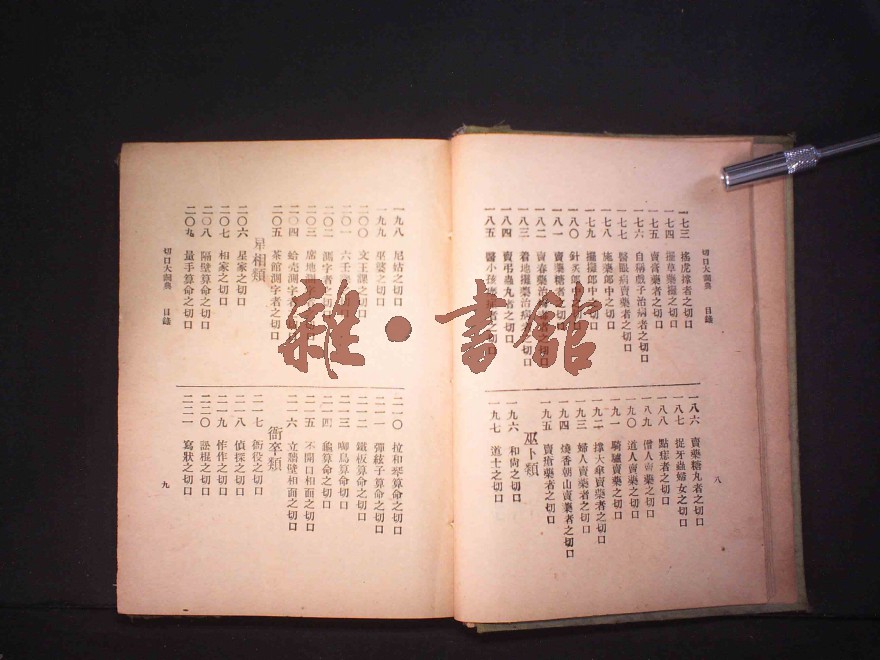 切口大詞典 目錄
八
一七三 搖虎撐者之切口
一七四 擺草藥攤之切口
一七五 賣膏藥者之切口
一七六 自稱戲子治病者之切口
一七七 醫眼病賣藥者之切口
一七八 施藥郎中之切口
一七九 擺攤郎中之切口
一八〇 針灸郎中之切口
一八一 賣藥糖者之切口
一八二 賣春藥治病者之切口
一八三 着地攤藥治病者之切口
一八四 賣弔蟲丸者之切口
一八五 醫小孩者之切口
一八六 賣藥糖丸者之切口
一八七 捉牙蟲婦女之切口
一八八 點痣者之切口
一八九 僧人賣藥之切口
一九〇 道人賣藥之切口
一九一 騎驢賣藥之切口
一九二 撐大傘賣藥者之切口
一九三 婦人賣藥者之切口
一九四 燒香朝山賣藥者之切口
一九五 賣瘡藥者之切口
巫卜類
一九六 和尚之切口
一九七 道士之切口
一九八 尼姑之切口
一九九 巫婆之切口
二〇〇 文王課之切口
二〇一 六壬之口
二〇二 測字者之切口
二〇三 席地測字之切口
二〇四 蛤壳測字者之切口
二〇五 茶館測字者之切口
星相類
二〇六 星家之切口
二〇七 相家之切口
二〇八 隔壁算命之切口
二〇九 量手算命之切口
二一〇 拉和琴算命之切口
二一一 彈絃子算命之切口
二一二 鐵板算命之切口
二一三 啣鳥算命切口
二一四 龜算命之切口
二一五 不開口相面之切口
二一六 立牆壁相面之切口
衙卒類
二一七 衙役之切口
二一八 偵探之切口
二一九 忤作之切口
二二〇 訟棍之切口
二二一 寫狀之切口
切口大詞典 目錄
九
雜·書館